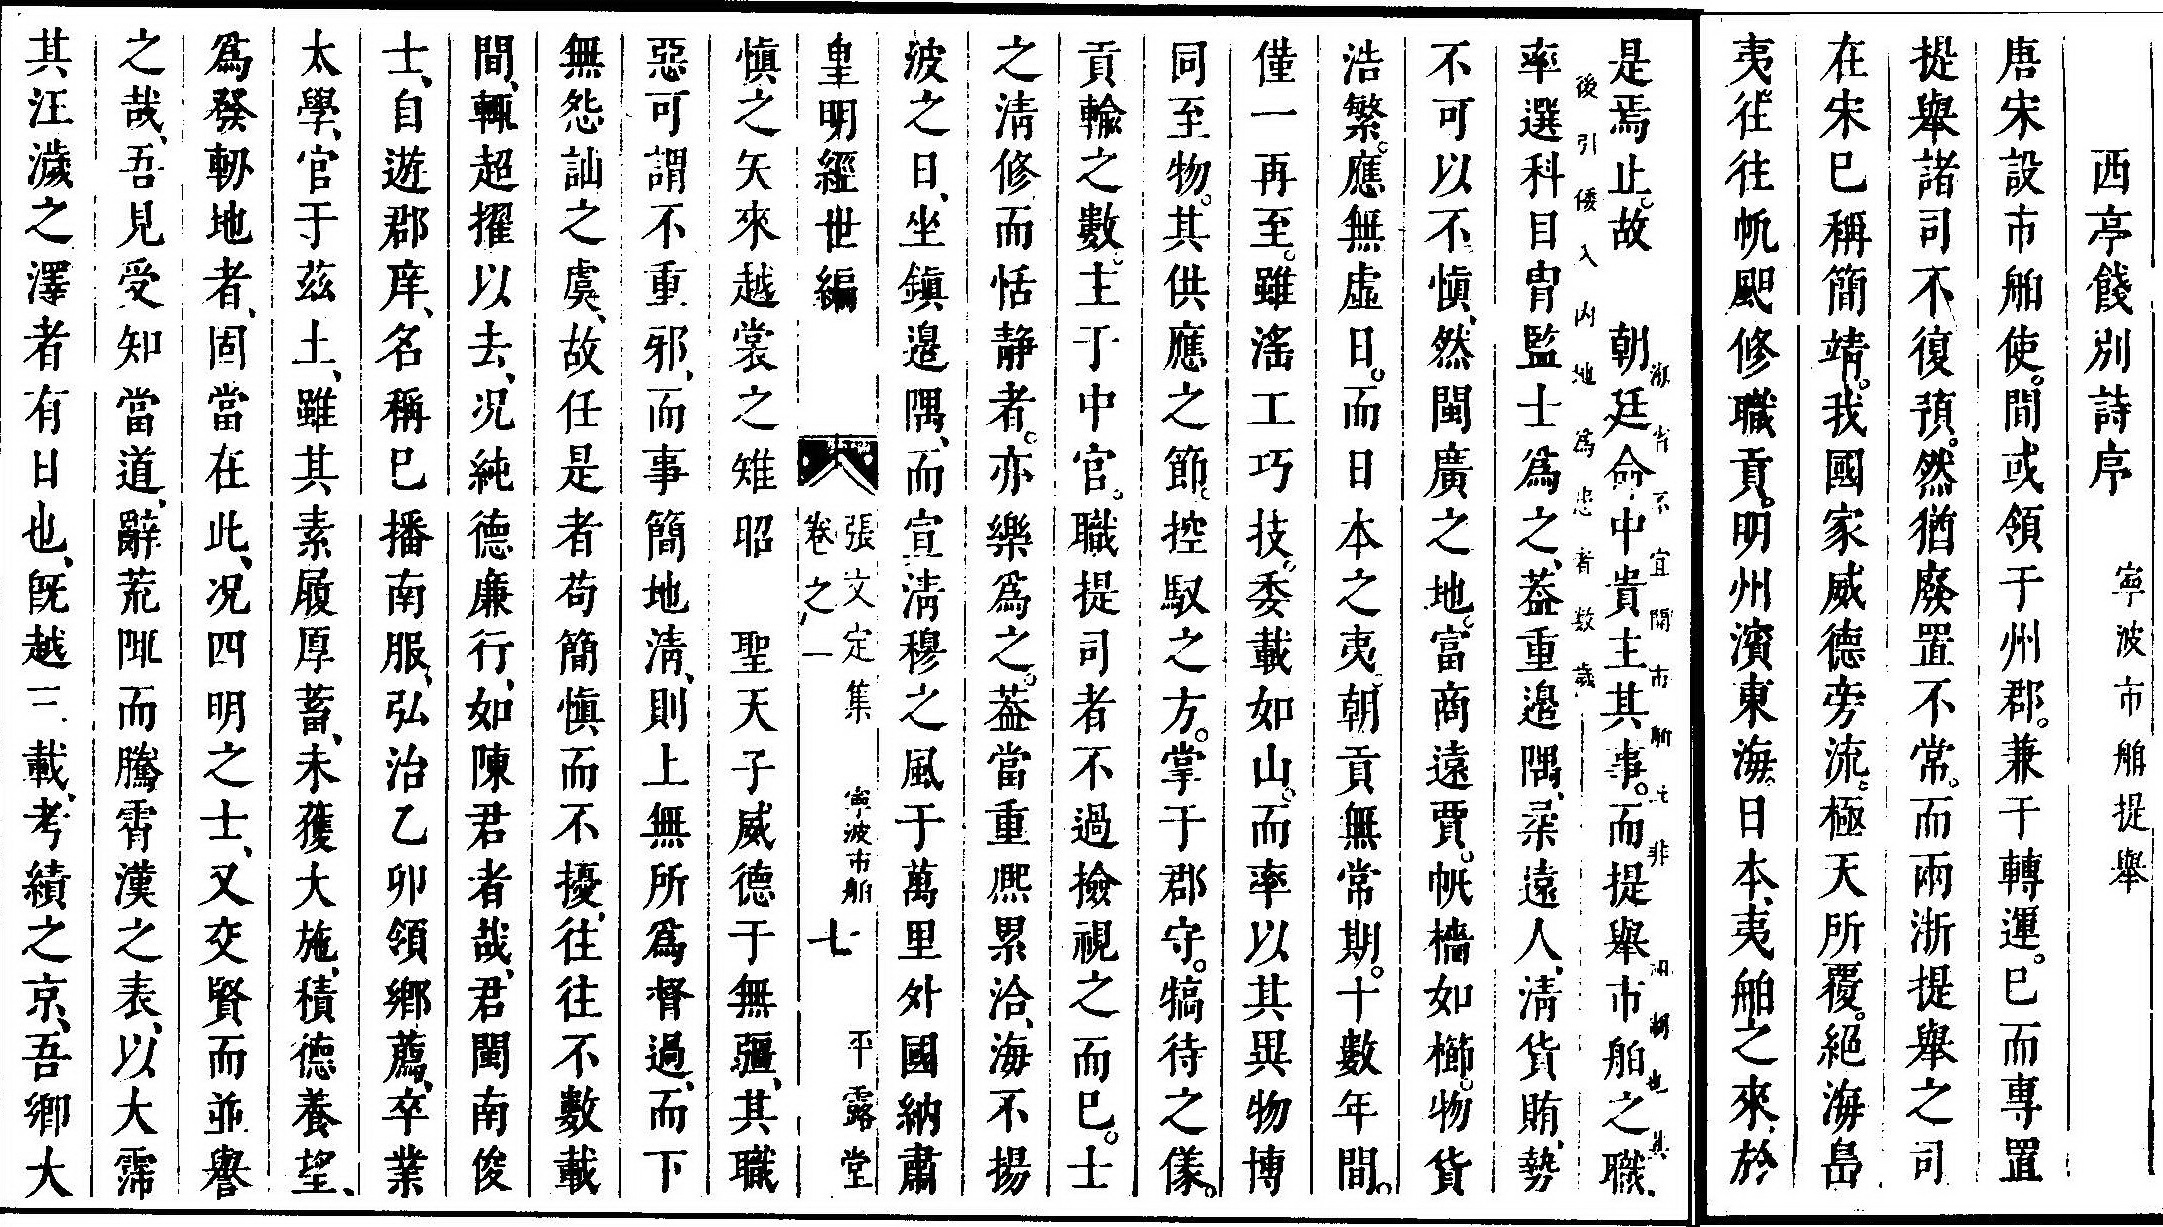 西亭餞別詩序
寧波市舶提舉
唐宋設市舶使。間或領于州郡。兼于轉運。巳而專置
提舉諸司不復預。然猶廢置不常。而兩浙提舉之司
在宋巳稱簡靖。我國家威德旁流。極天所覆。絕海島
夷。往往帆颶修職貢。明州濱東海。日本夷舶之來、於
是焉止。故　朝廷命中貴主其事。而提舉市舶之職、
後引倭入內地為忠者數歲
率選科目胄監士爲之、蓋重邊隅、柔遠人、清貨賄、勢
不可以不慎、然閩廣之地。富商遠賈。帆檣如櫛。物貨
浩繁。應無虛日。而日本之夷。朝貢無常期。十數年間。
僅一再至。雖滛工巧技。委載如山。而率以其異物博
同至物。其供應之節。控馭之方。掌于郡守。犒待之儀。
貢輸之數。主于中官。職提司者不過撿視之而巳。士
之清修而恬靜者。亦樂爲之。蓋當重熈累洽、海不揚
波之日、坐鎮邊隅、而宣清穆之風于萬里外國納肅
皇明經世編
張文定集　寧波市舶　平露堂
卷之一　七
慎之矢來越裳之雉　昭　聖天子威德于無疆、其職
惡可謂不重邪、而事簡地清、則上無所爲督過、而下
無怨訕之虞、故任是者苟簡慎而不擾、往往不數載
間、輒超擢以去、况純德廉行、如陳君者哉、君閩南俊
士、自遊郡庠、名稱巳播南服、弘治乙卯領鄉薦、卒業
太學、官于茲土、雖其素履厚蓄、未獲大施、積德養望、
爲發軔地者、固當在此、况四明之士、又交賢而並譽
之哉、吾見受知當道、辭荒陬而騰霄漢之表、以大霈
其汪濊之澤者有日也、旣越三載、考績之京、吾鄉大